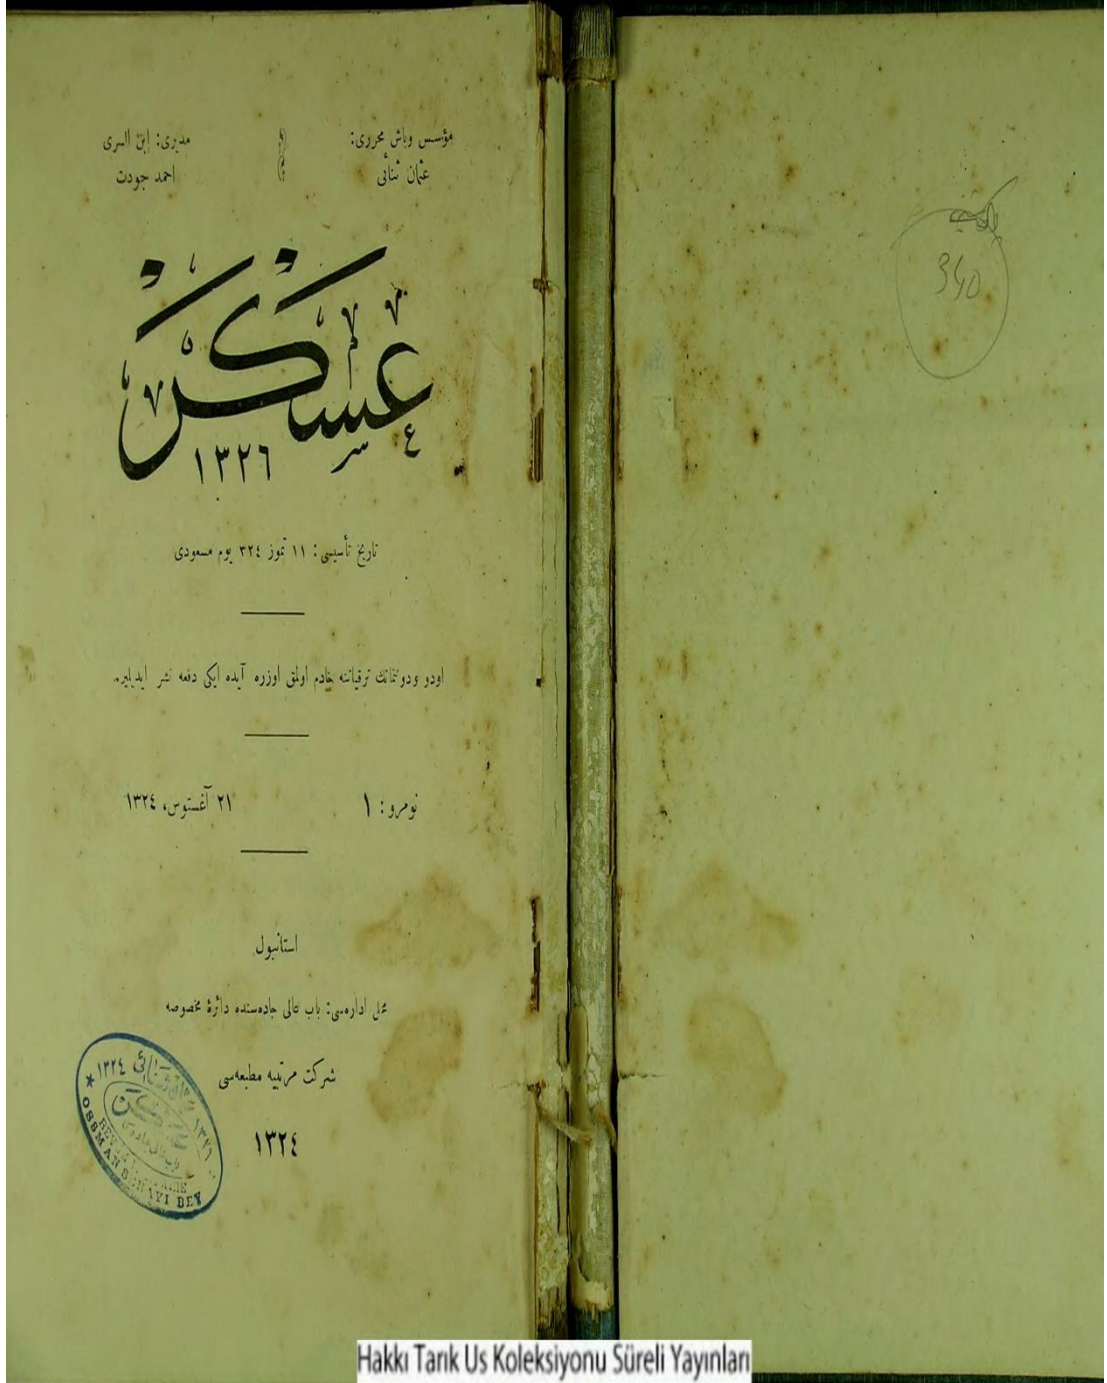 مؤسس وباش محرری:
عثمان ثنائی
مدیری: ابن السری
احمد جودت
عسكر
١٣٢٦
تاریخ تأسیسی: ١١ تموز ٣٢٤ یوم مسعودی
اودو ودوننمانك ترقیاتنه خادم اولمق اوزره آیده ایکی دفعه نشر ایدیلیر.
نومرو: ١
٢١ آغستوس، ١٣٢٤
استانبول
محل اداره‌سی: باب عالی جاده‌سنده دائرهٔ مخصوصه
شرکت مرتبیه مطبعه‌سی
١٣٢٤
١٣٢٤
OSSMAN SENAYI BEY
340
Hakkı Tarık Us Koleksiyonu Süreli Yayınları